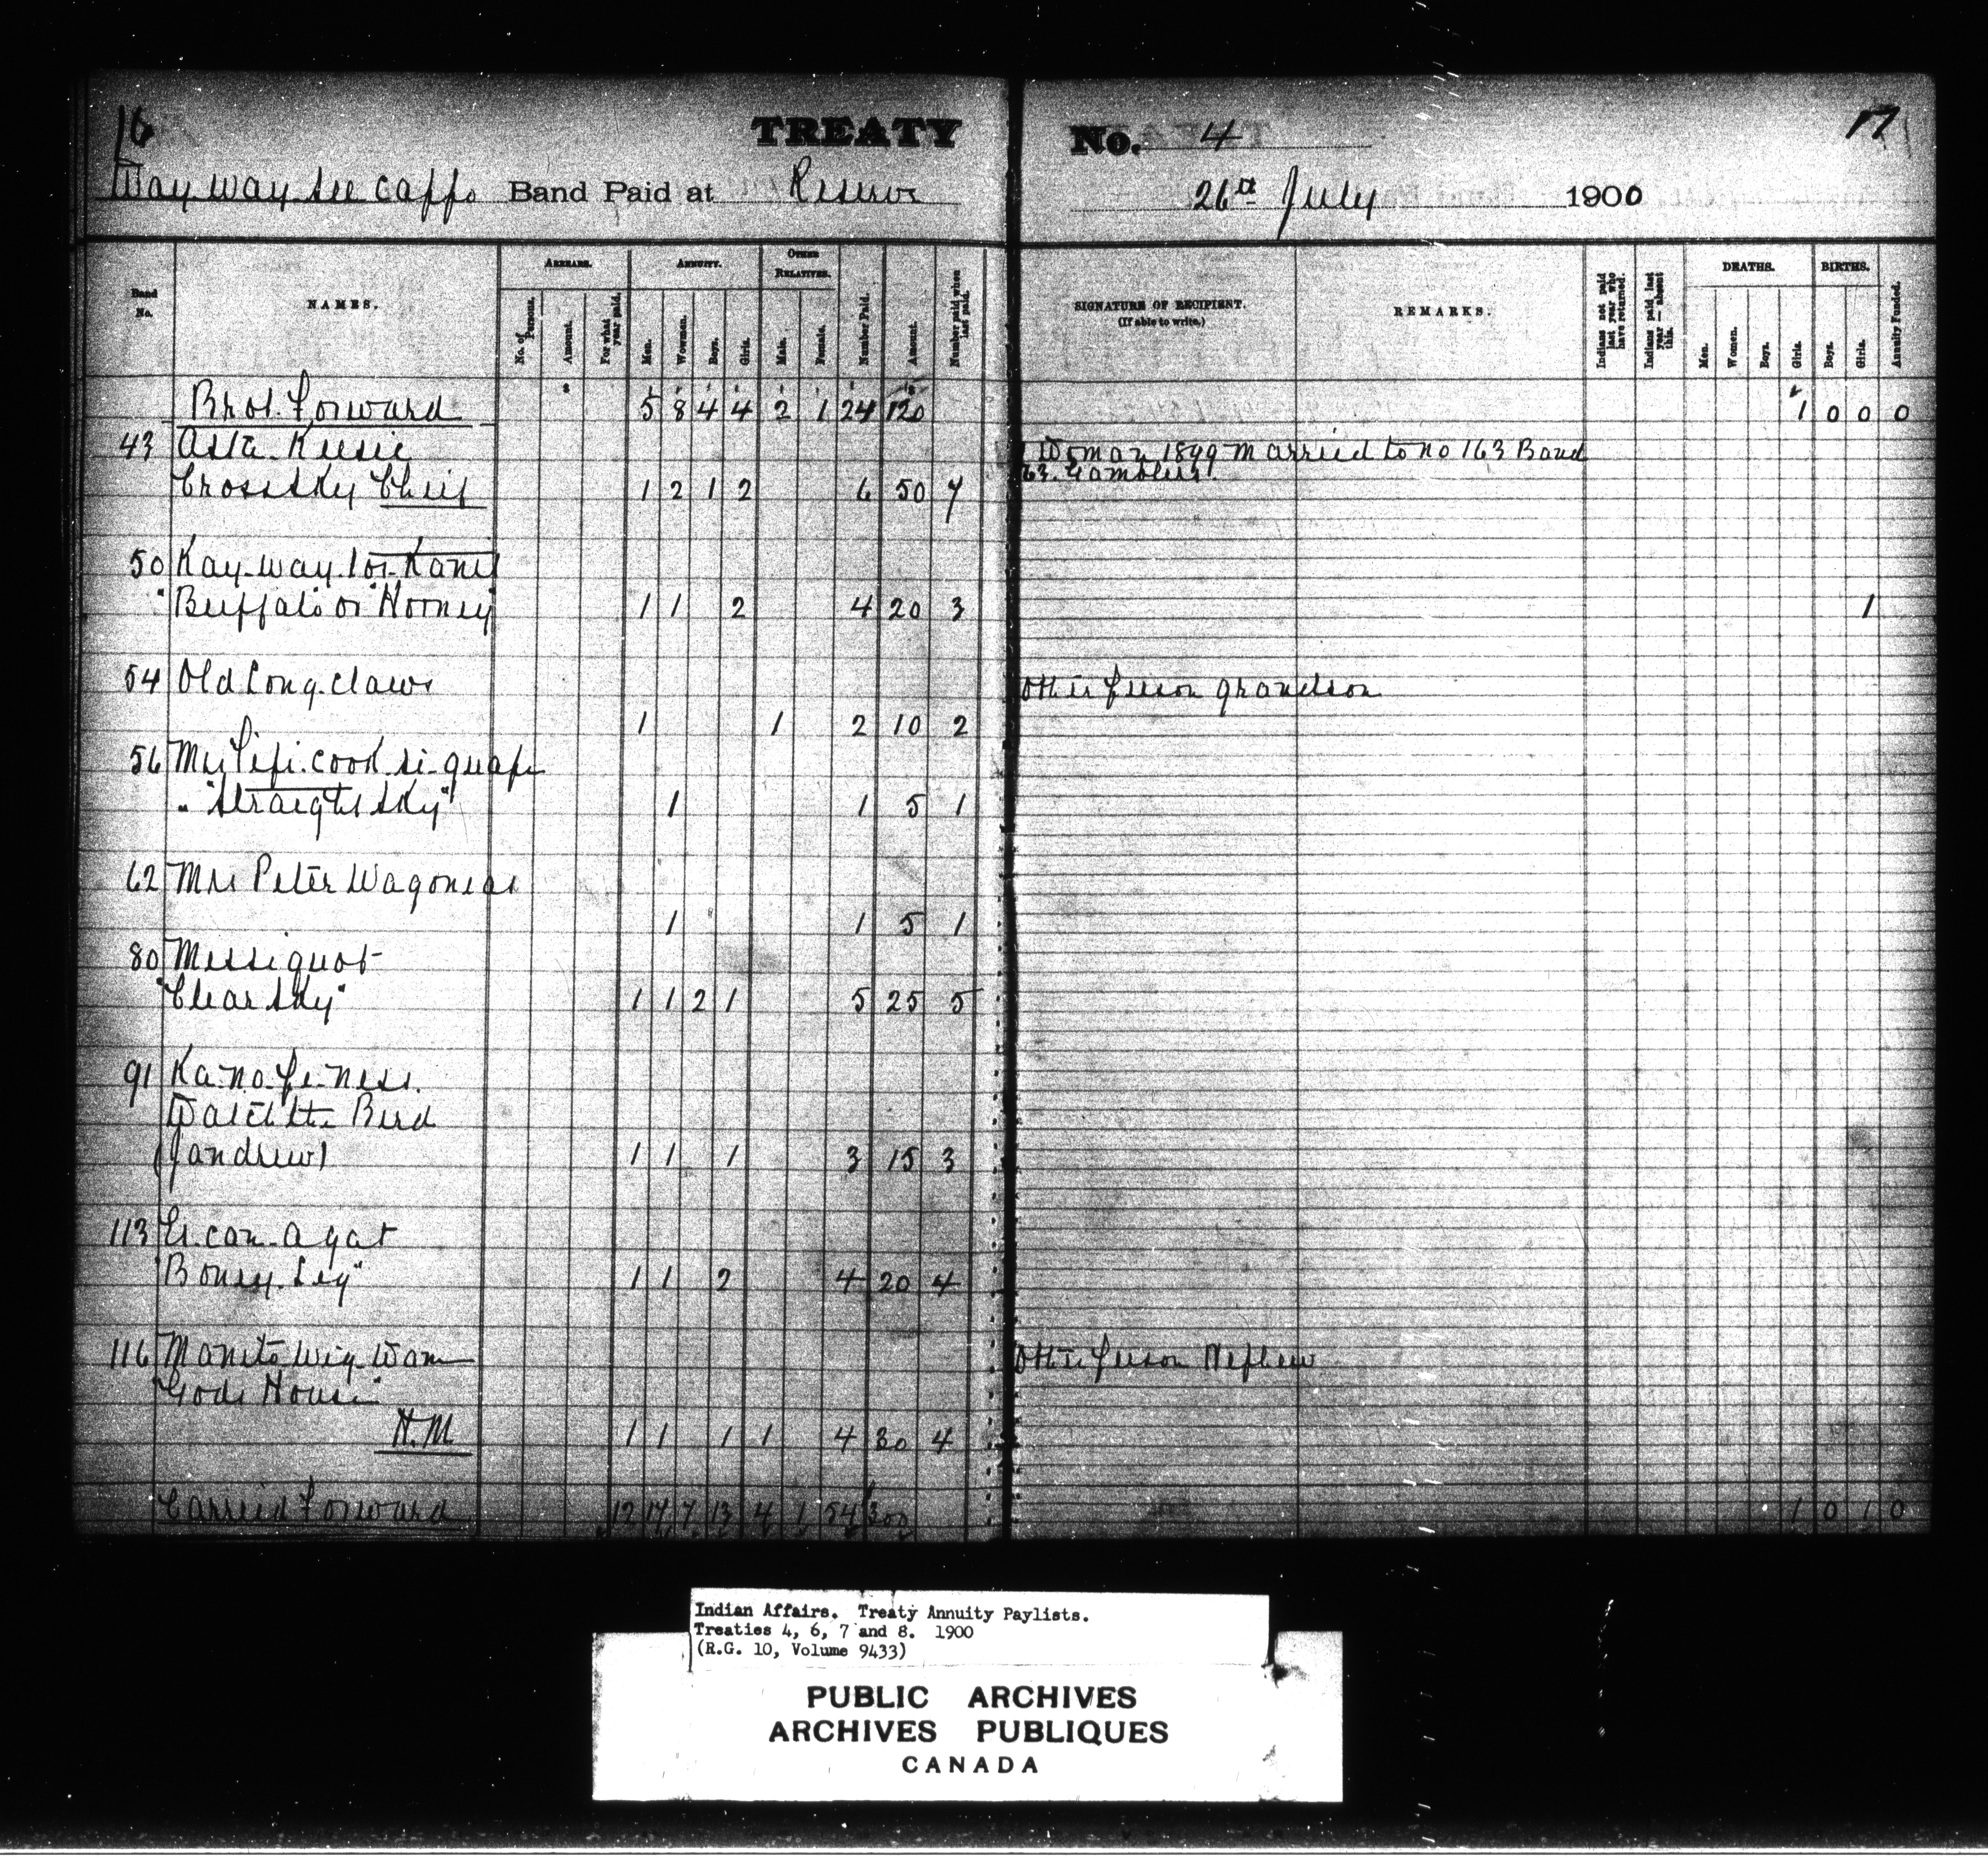 16 TREATY No. 4 17
Way way see cappo Band Paid at Reserve 26th July 1900
Band No.
NAMES.
ARREARS.
No. of Persons.
Amount.
For what year paid.
ANNUITY.
Men.
Women.
Boys.
Girls.
OTHER RELATIVES.
Male.
Female.
Number Paid.
Amount.
Number paid when last paid.
SIGNATURE OF RECIPIENT.
(If able to write.)
REMARKS.
Indians not paid last year who have returned.
Indians paid last year — absent this.
DEATHS.
Men.
Women.
Boys.
Girls.
BIRTHS.
Boys.
Girls.
Annuity Funded.
Brot. Forward 5 8 4 4 2 1 24 120 1 0 0 0
43 Asta Keesic 1 Woman 1899 married to no 163 Band
Cross Sky Chief 1 2 1 2 6 50 7 63. Gamblers.
50 Kay-way-
" Buffalo or Horney" 1 1 2 4 20 3 1
54 Old Long claws Other person grandson
1 1 2 10 2
56
" "Straight Sky" 1 1 5 1
62 Mrs Peter Wagonsas
1 1 5 1
80 Messiquot
"Clear Sky" 1 1 2 1 5 25 5
91 Ka-no-pe-ness.
Watch the Bird
(Jandrew) 1 1 1 3 15 3
113 Es-can-a gat
"Boney Leg" 1 1 2 4 20 4
116 Manito Wig-Wam Other person Nephew
"Gods House"
H.M. 1 1 1 1 4 30 4
Carried Forward 12 17 7 13 4 1 54 300 1 0 1 0
Indian Affairs. Treaty Annuity Paylists.
Treaties 4, 6, 7 and 8. 1900
(R.G. 10, Volume 9433)
PUBLIC ARCHIVES
ARCHIVES PUBLIQUES
CANADA